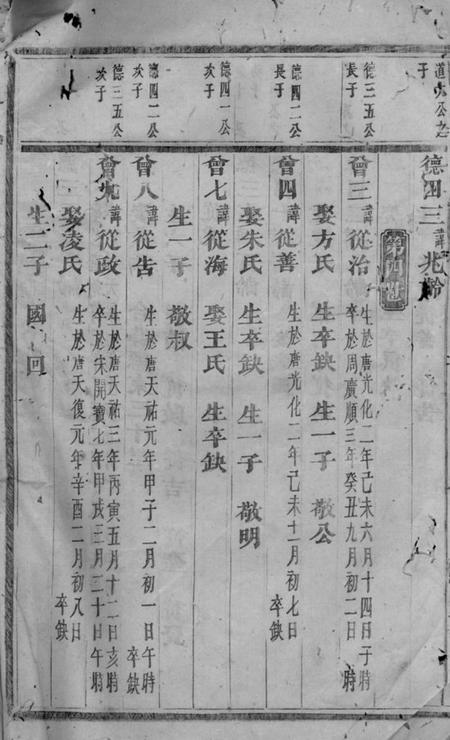 道六公之
子
德四三 諱兆齡
第四世
德三五公
長子
曾三 諱從治 生於唐光化二年己未六月十四日子時
卒於周廣順三年癸丑九月初二日 時
娶方氏 生卒缺 生一子 敬公
德四二公
長子
曾四 諱從善 生於唐光化二年己未十一月初七日
卒缺
娶朱氏 生卒缺 生一子 敬明
德四一公
次子
曾七 諱從海 娶王氏 生卒缺
生一子 敬叔
德四二公
次子
曾八 諱從告 生於唐天祐元年甲子二月初一日午時
卒缺
德三五公
次子
曾九 諱從政 生於唐天祐三年丙寅五月十二日亥時
卒於宋開寶七年甲戌三月二十日午時
娶凌氏 生於唐天復元年辛酉二月初八日
卒缺
生二子 國 回